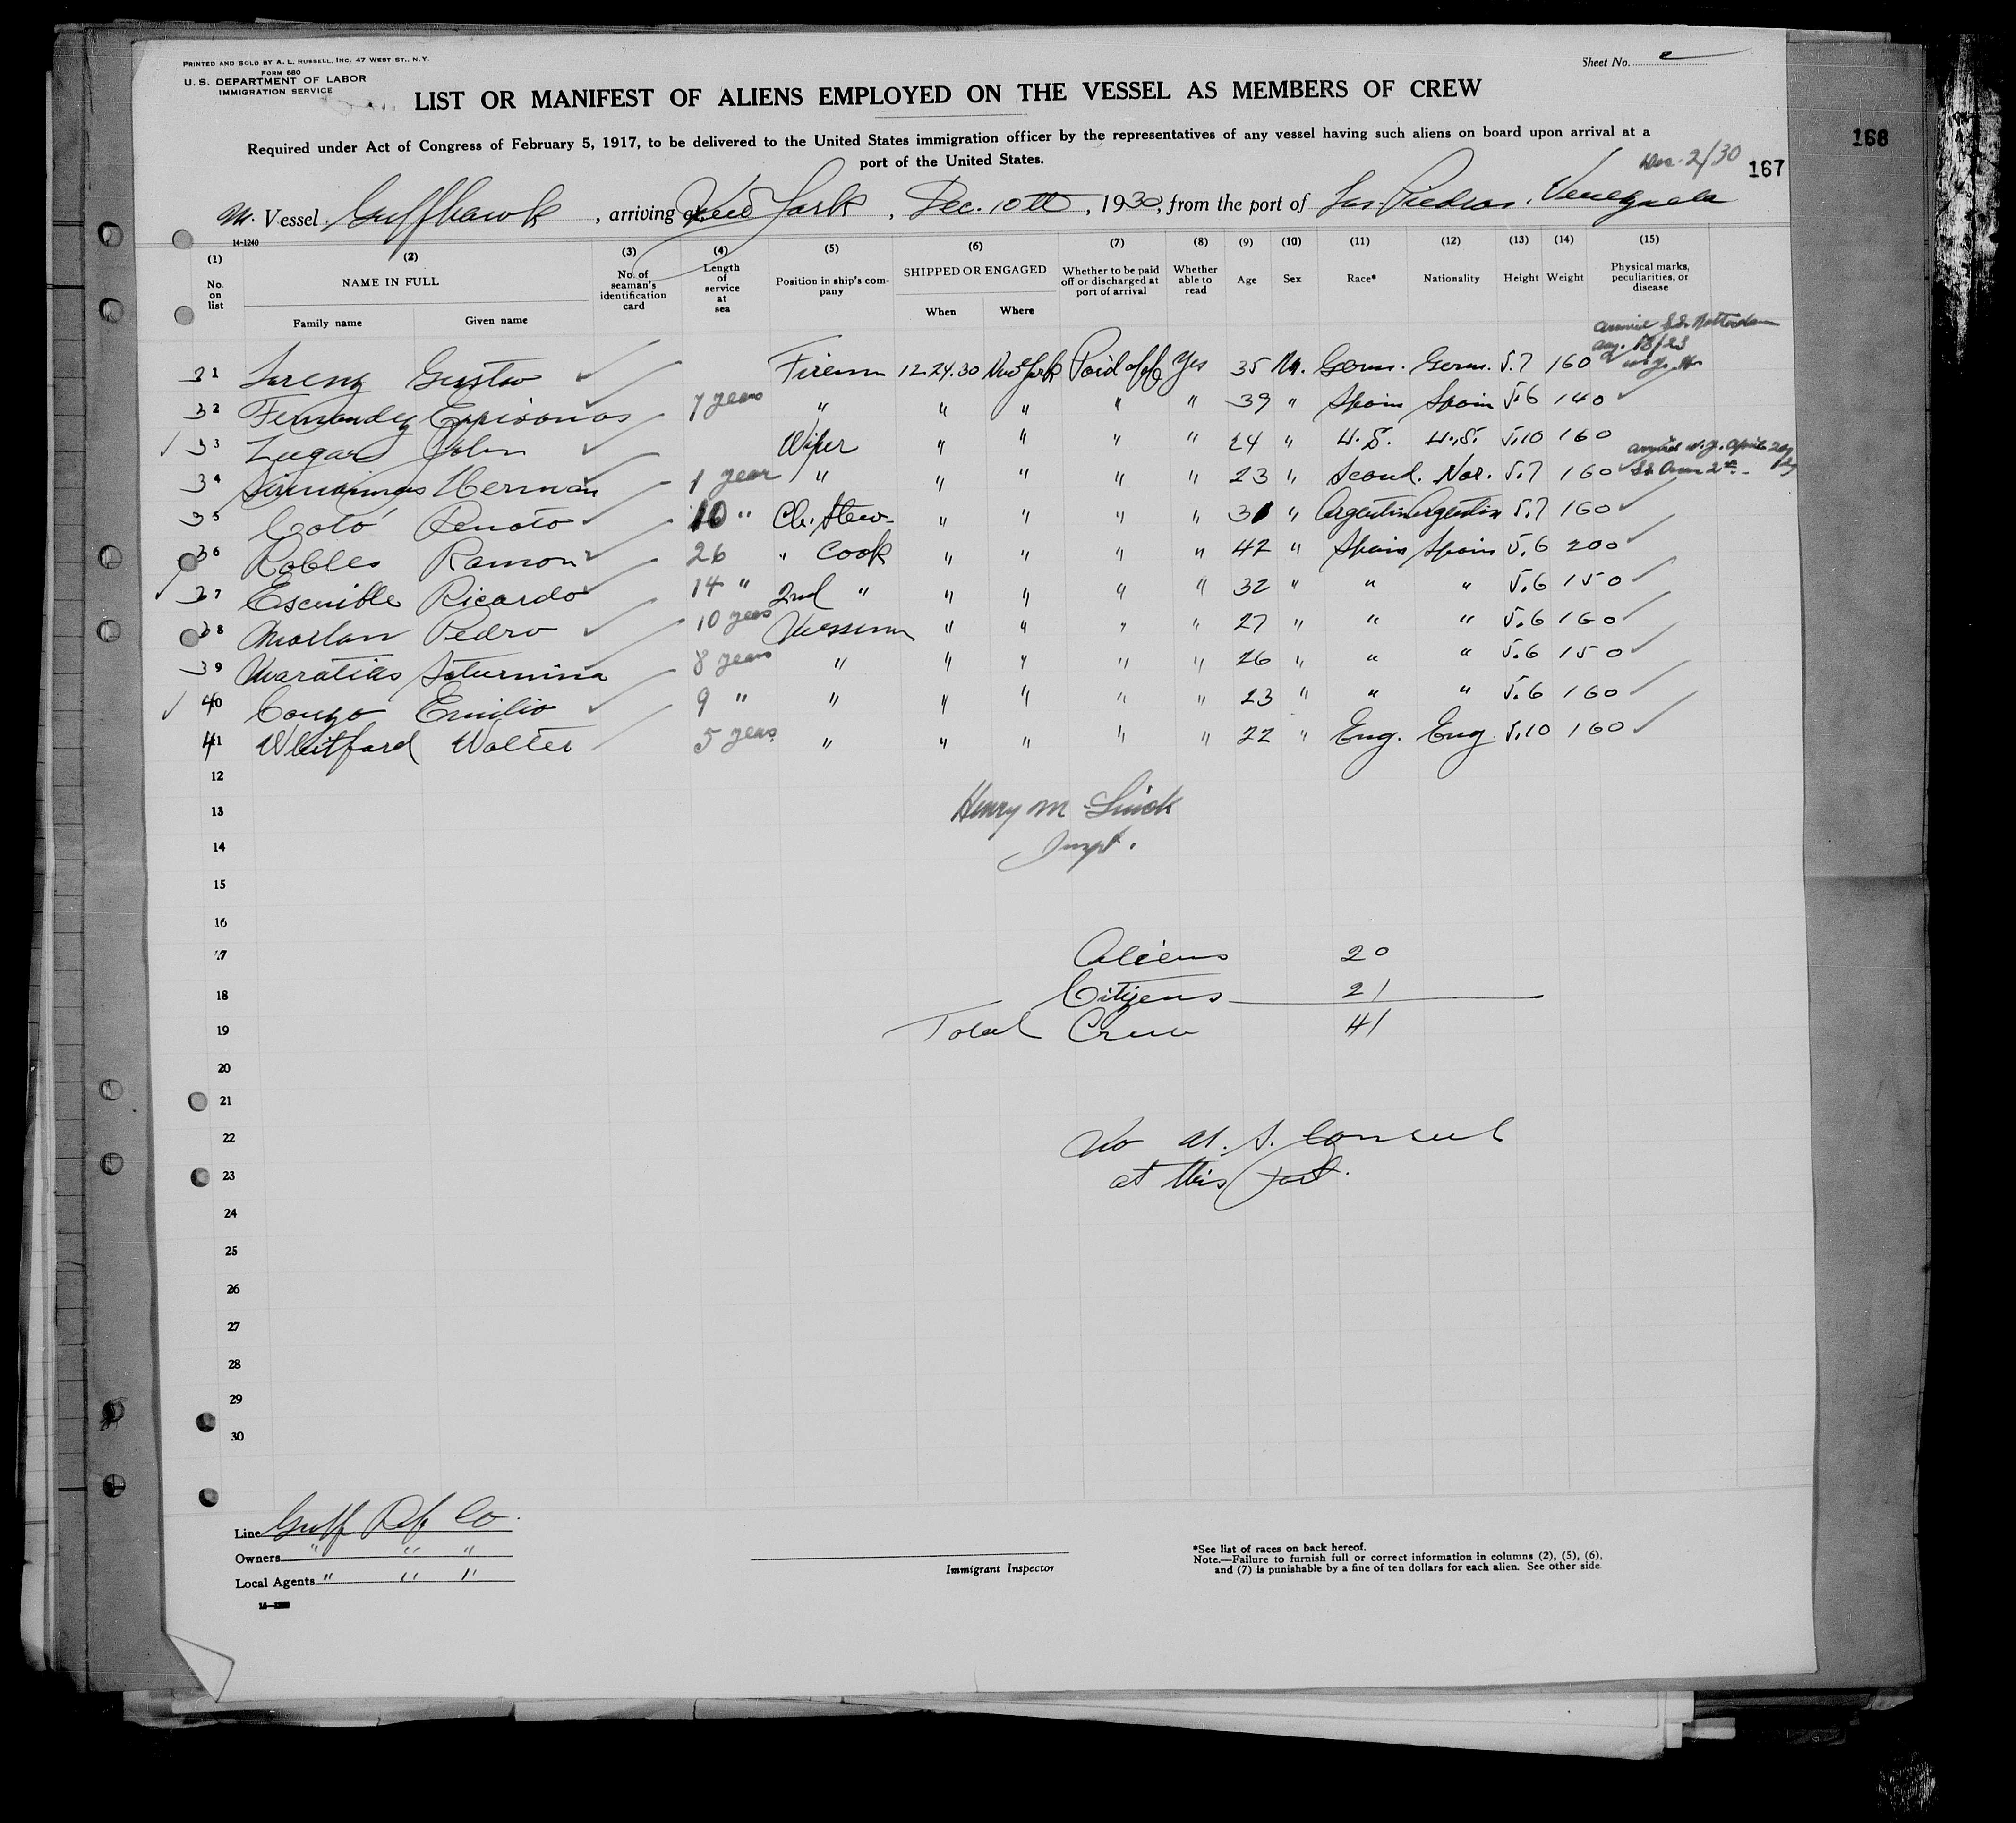 PRINTED AND SOLD BY A. L. RUSSELL, INC. 47 WEST ST., N.Y.
FORM 680
U. S. DEPARTMENT OF LABOR
IMMIGRATION SERVICE
Sheet No. 2
LIST OR MANIFEST OF ALIENS EMPLOYED ON THE VESSEL AS MEMBERS OF CREW
168
Required under Act of Congress of February 5, 1917, to be delivered to the United States immigration officer by the representatives of any vessel having such aliens on board upon arrival at a
port of the United States.
2/30 167
M. Vessel Gulfhawk, arriving at New York, Dec. 10th, 1930, from the port of Las Piedras, Venezuela
14-1240
(1) (2) (3) (4) (5) (6) (7) (8) (9) (10) (11) (12) (13) (14) (15)
No. on list NAME IN FULL No. of seaman's identification card Length of service at sea Position in ship's company SHIPPED OR ENGAGED Whether to be paid off or discharged at port of arrival Whether able to read Age Sex Race* Nationality Height Weight Physical marks, peculiarities, or disease
Family name Given name When Where
Aug. 18/23
31 Lorenz Gustav Firemn 12-24-30 New York Paid off Yes 35 M. Germ. Germ. 5.7 160
32 Fernandez 7 years " " " " " 39 " Spain Spain 5.6 140
33 John Wiper " " " " 24 " U.S. U.S. 5.10 160
34 Herman 1 year " " " " " 23 " Scand. Nor. 5.7 160
35 Coto Renato 10 " Ch. Stew. " " " " 31 " Argentin Argentin 5.7 160
36 Robles Ramon 26 " Cook " " " " 42 " Spain Spain 5.6 200
37 Escuible Ricardo 14 " 2nd " " " " " 32 " " " 5.6 150
38 Pedro 10 years Messmn " " " " 27 " " " 5.6 160
39 Saturnina 8 years " " " " " 26 " " " 5.6 150
40 Couzo Emilio 9 " " " " " " 23 " " " 5.6 160
41 Whitford Walter 5 years " " " " " 22 " Eng. Eng. 5.10 160
12
13 Henry M
14
15
16
17 Aliens 20
18 Citizens 21
19 Total Crew 41
20
21
22 No U. S. Consul
23 at this port.
24
25
26
27
28
29
30
Line Gulf Ref. Co.
Owners " " "
Local Agents " " "
Immigrant Inspector
*See list of races on back hereof.
Note.—Failure to furnish full or correct information in columns (2), (5), (6),
and (7) is punishable by a fine of ten dollars for each alien. See other side.